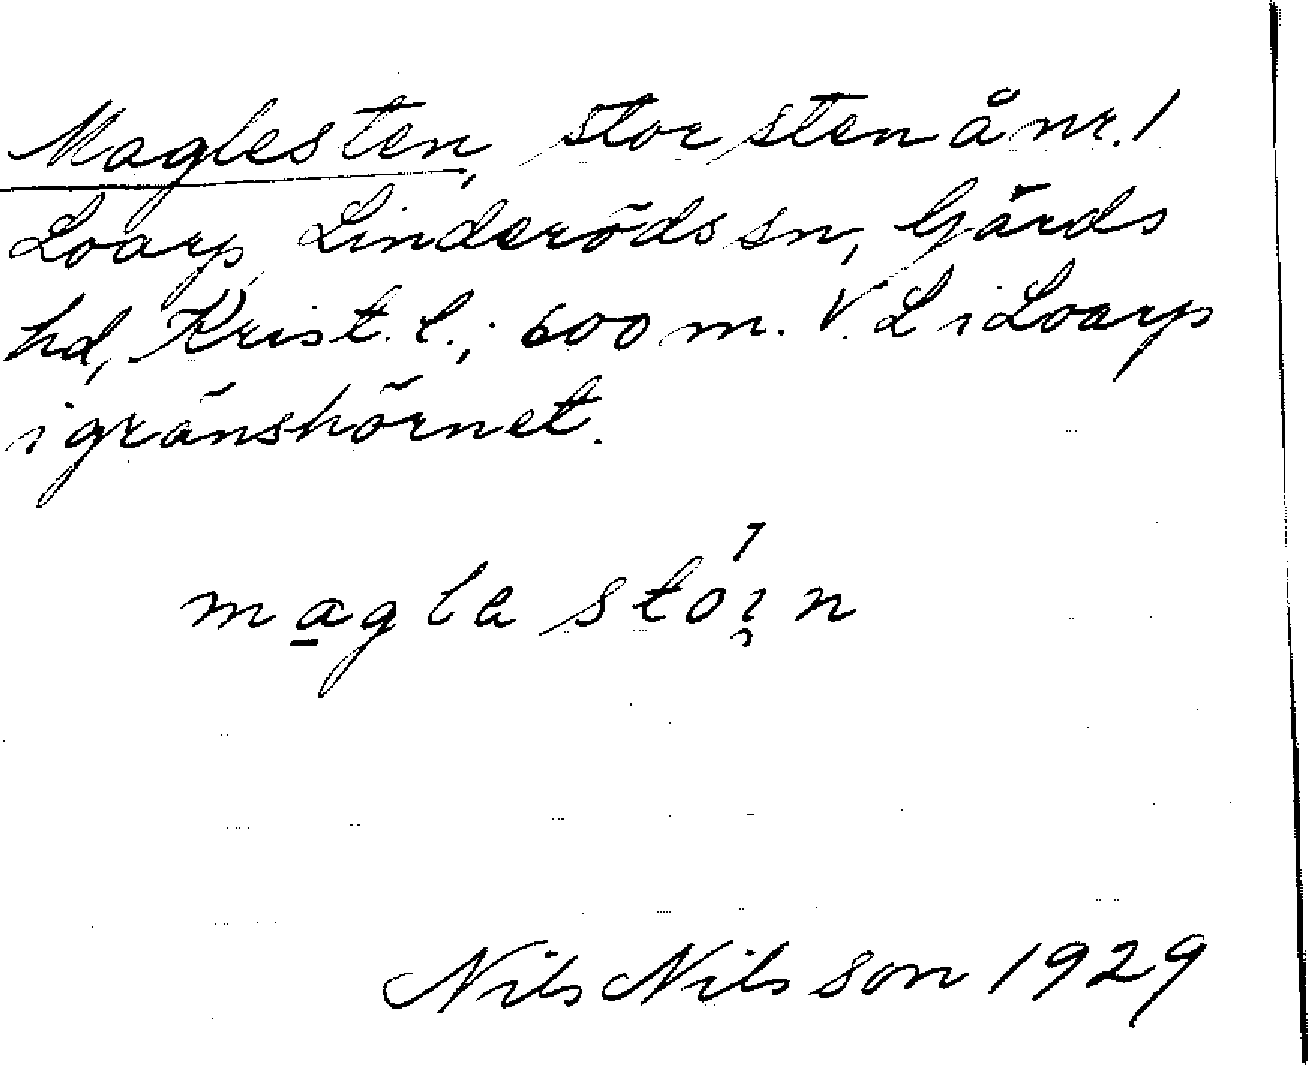 Maglesten, stor sten å nr. 1
Loarp, Linderöds sn, Gärds
hd, Krist. l.; 600 m. V. L i Loarp
i gränshörnet.
magla stöin
Nils Nilsson 1929